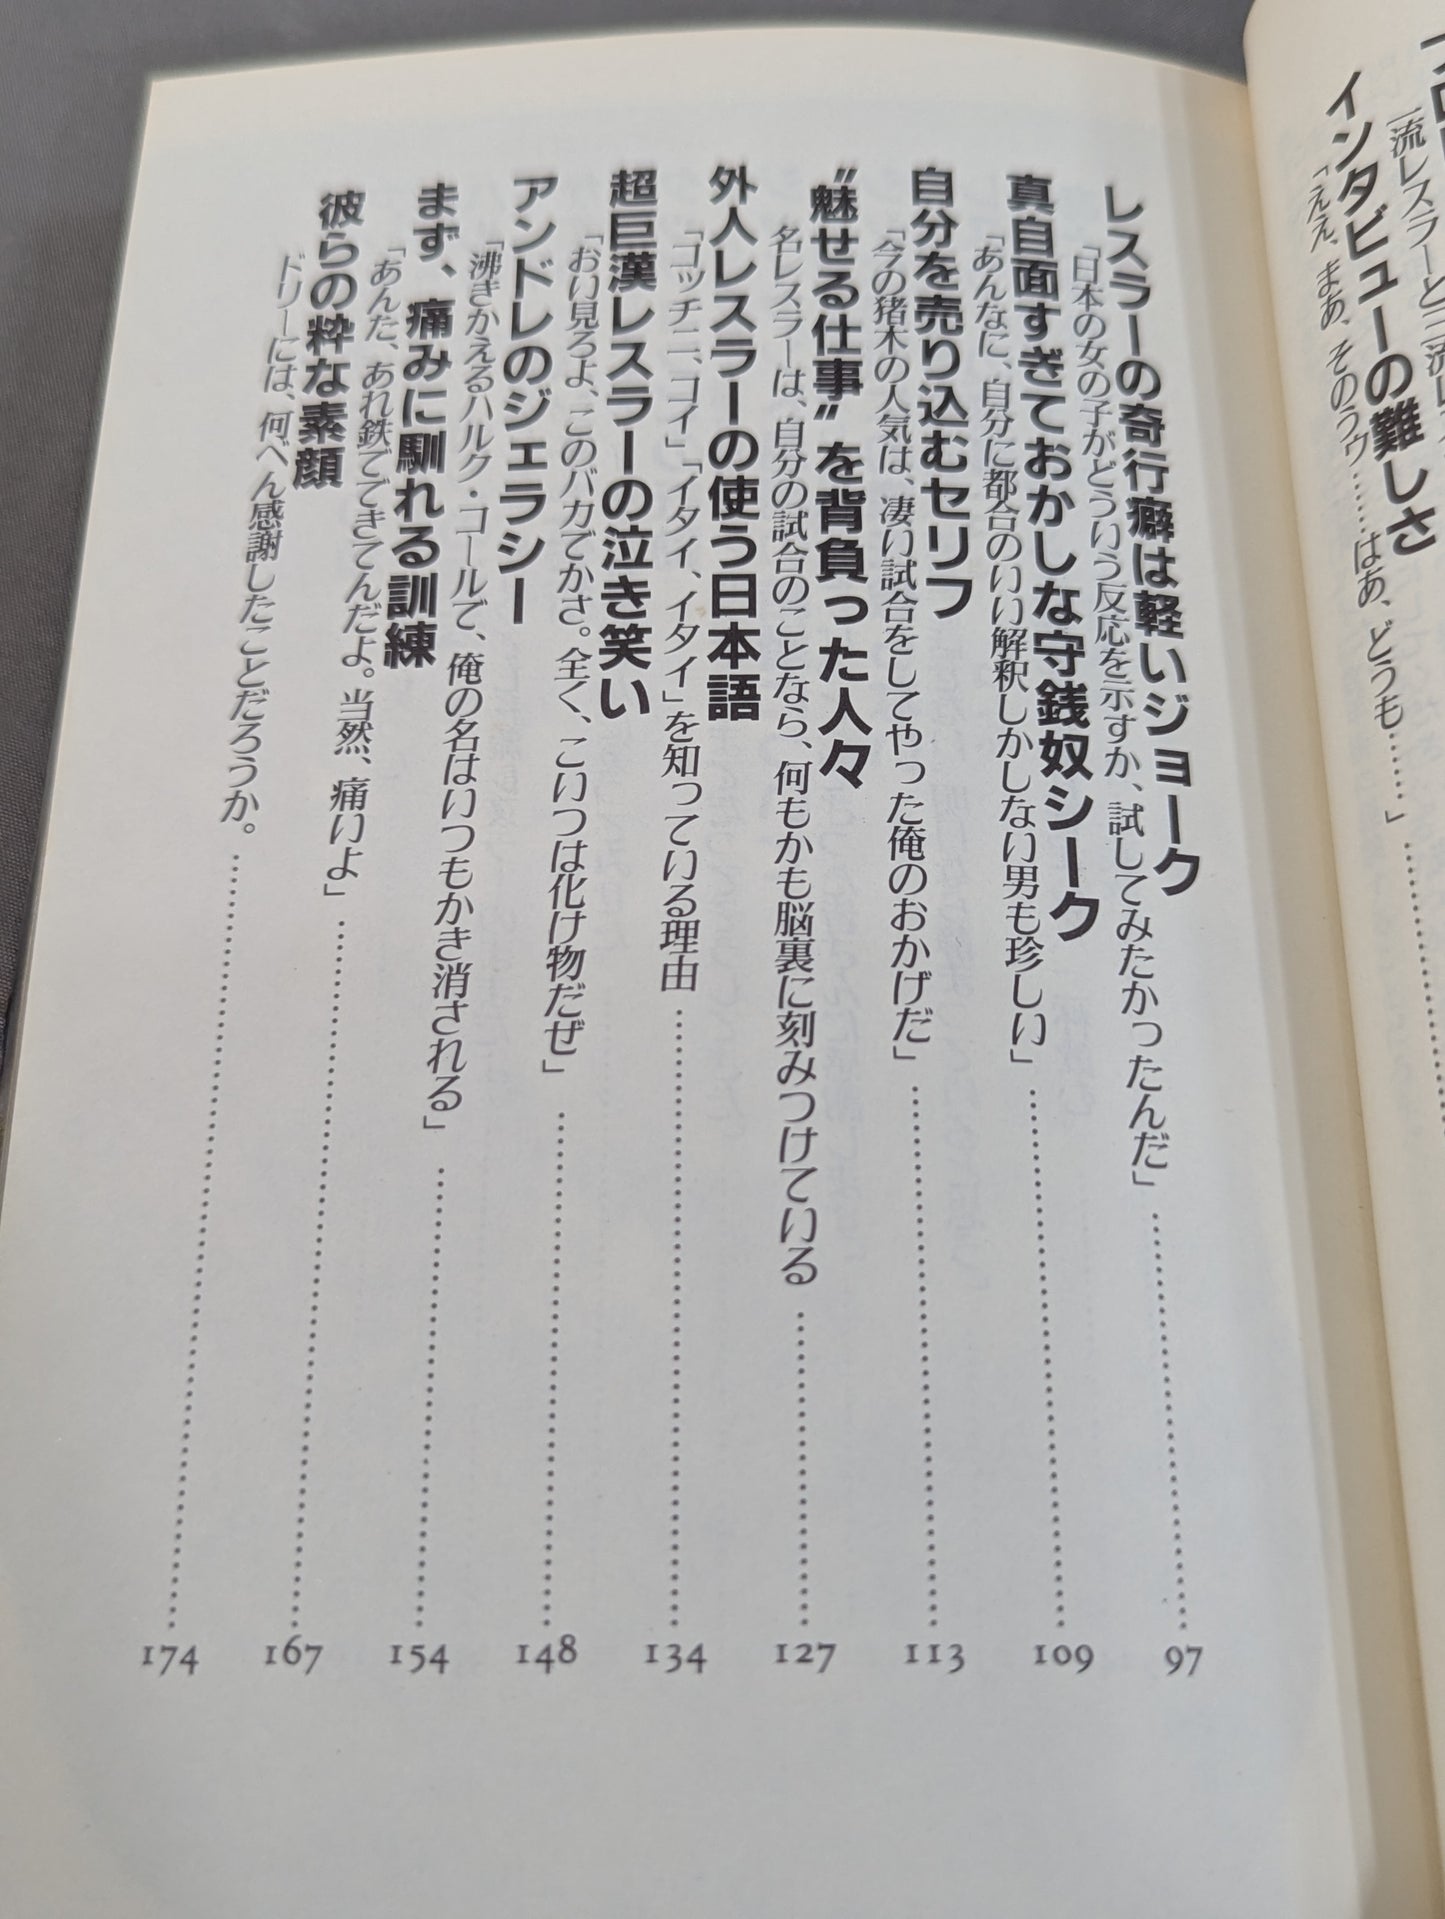 インタビューの難しさ
「ええ、まあ、そのうゥ……はあ、どうも……」
レスラーの奇行癖は軽いジョーク
「日本の女の子がどういう反応を示すか、試してみたかったんだ」
97
真自面すぎておかしな守銭奴シーク
「あんなに、自分に都合のいい解釈しかしない男も珍しい」
109
自分を売り込むセリフ
「今の猪木の人気は、凄い試合をしてやった俺のおかげだ」
113
“魅せる仕事”を背負った人々
名レスラーは、自分の試合のことなら、何もかも脳裏に刻みつけている
127
外人レスラーの使う日本語
「コッチニ、コイ」「イタイ、イタイ」を知っている理由
134
超巨漢レスラーの泣き笑い
「おい見ろよ、このバカでかさ。全く、こいつは化け物だぜ」
148
アンドレのジェラシー
「沸きかえるハルク・コールで、俺の名はいつもかき消される」
154
まず、痛みに馴れる訓練
「あんた、あれ鉄でできてんだよ。当然、痛いよ」
167
彼らの粋な素顔
ドリーには、何べん感謝したことだろうか。
174